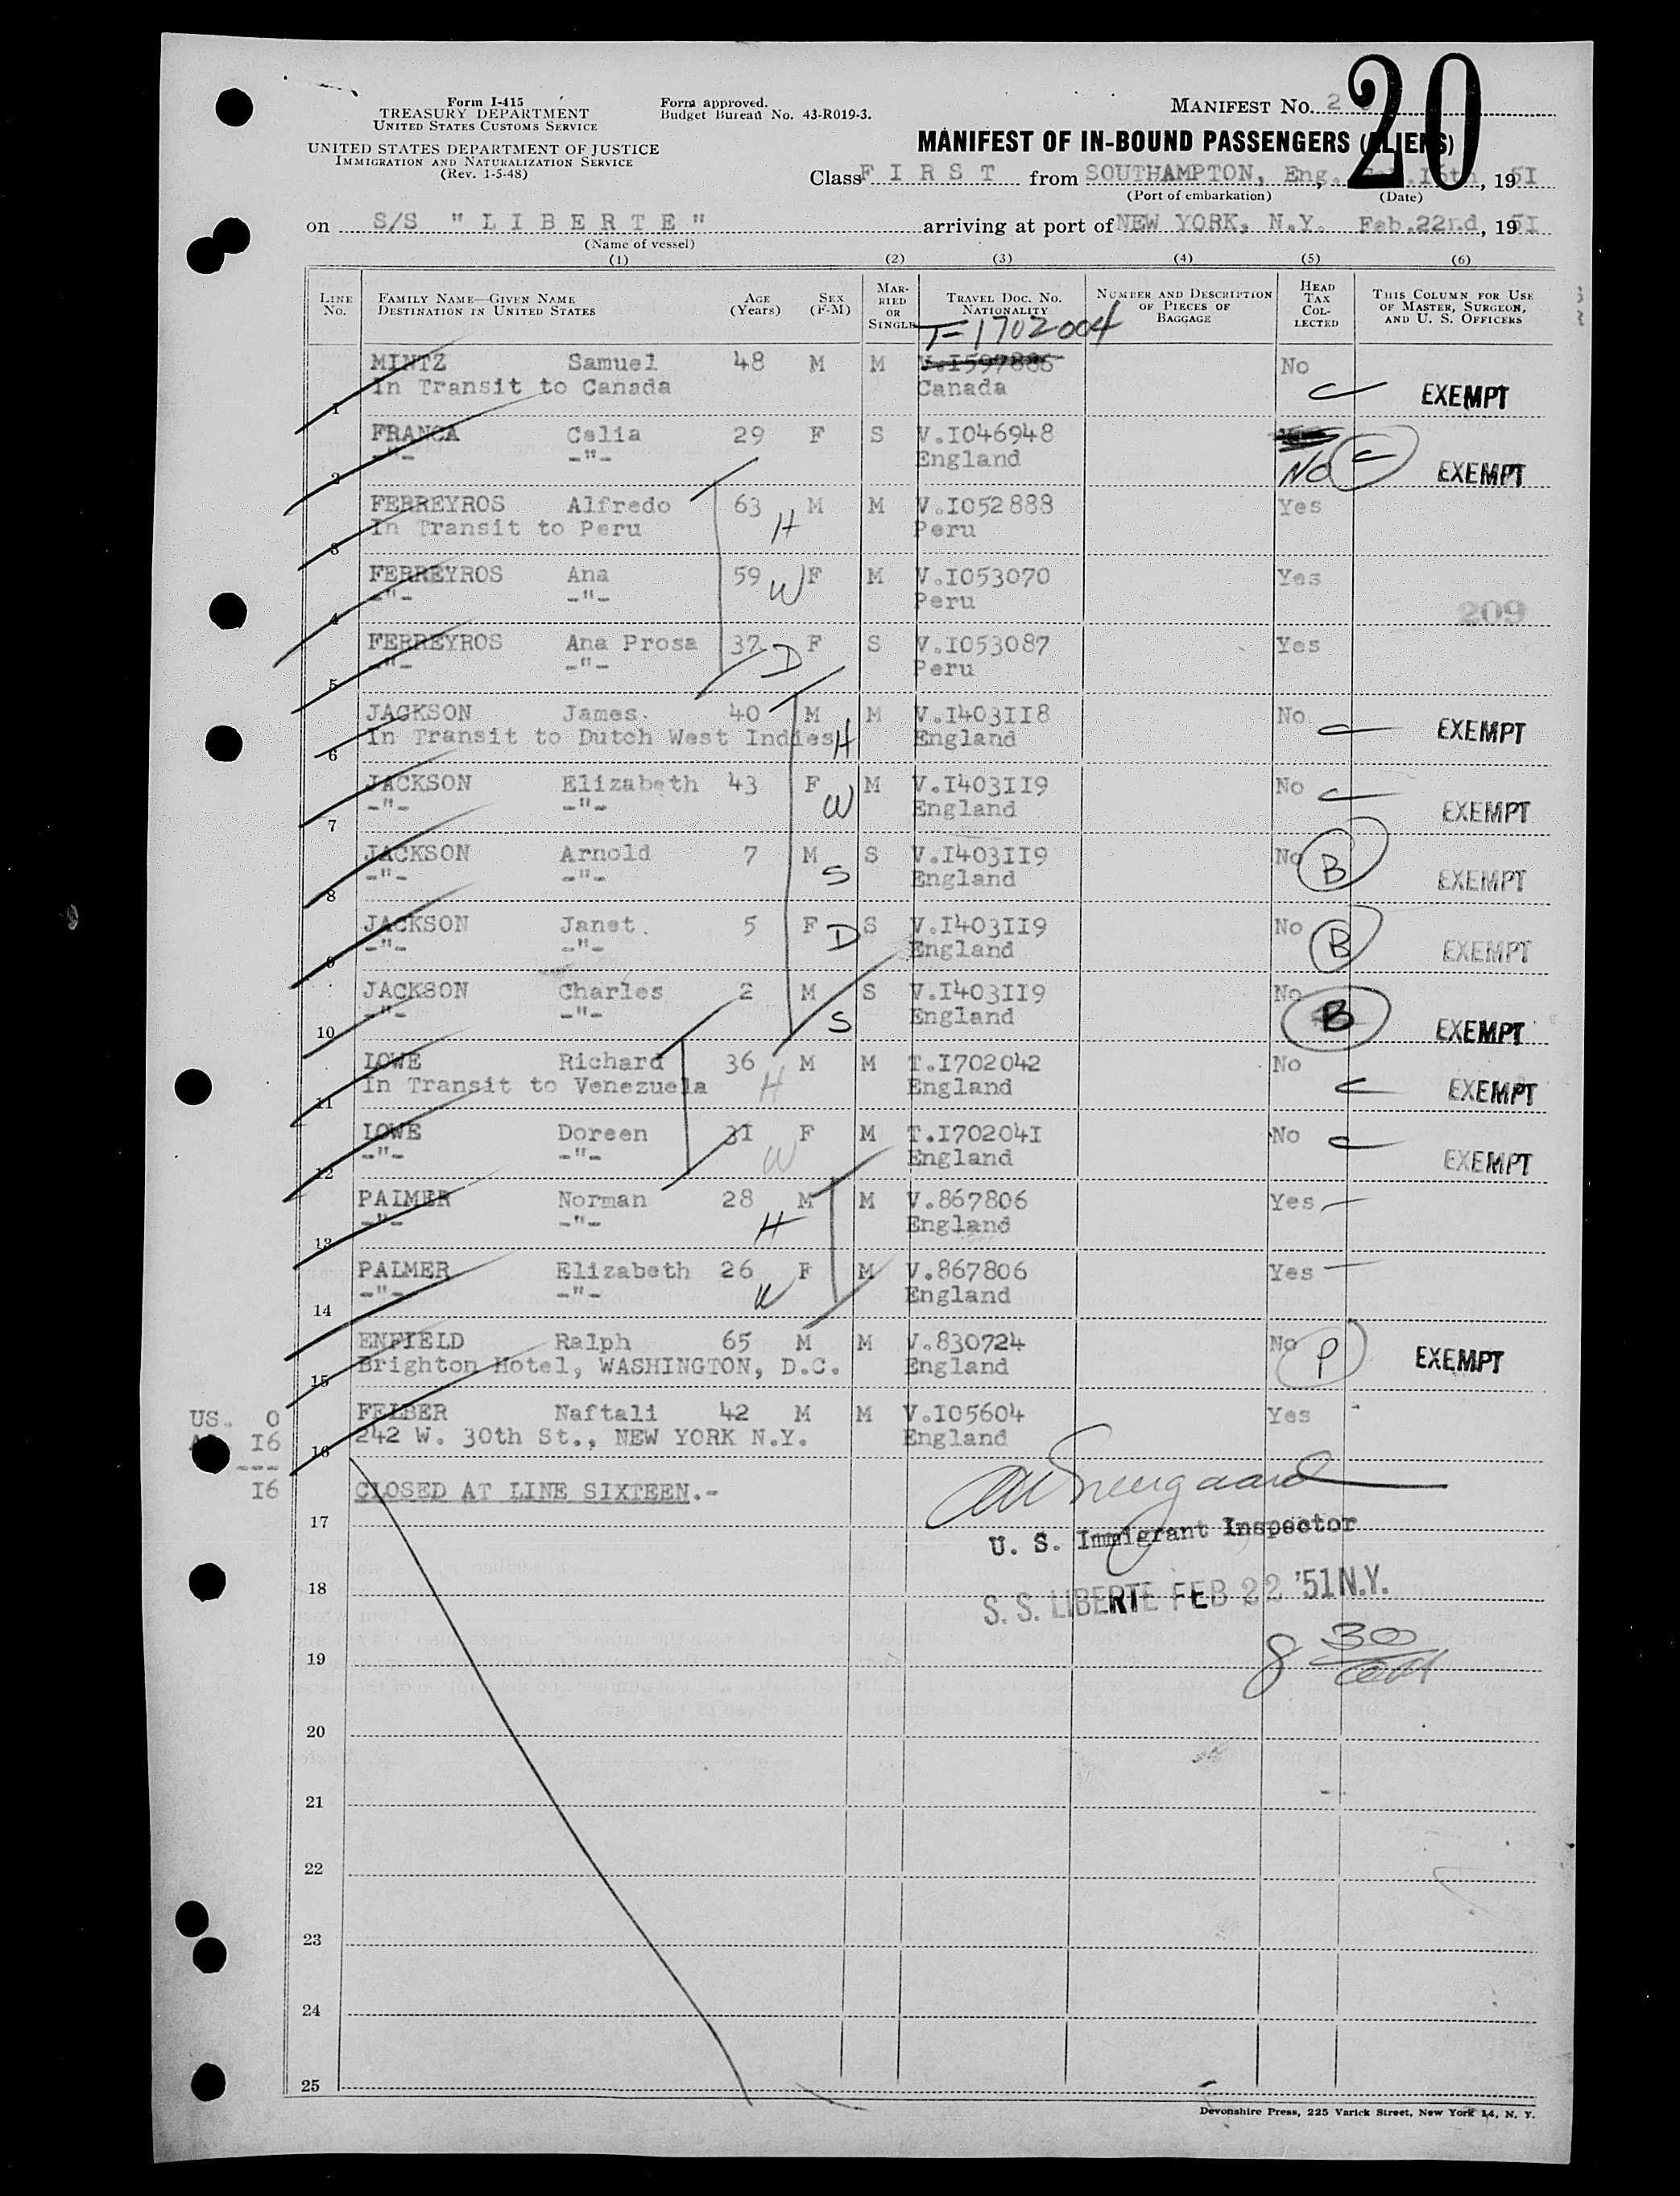 Form I-415
TREASURY DEPARTMENT
UNITED STATES CUSTOMS SERVICE
UNITED STATES DEPARTMENT OF JUSTICE
IMMIGRATION AND NATURALIZATION SERVICE
(Rev. 1-5-48)
Form approved.
Budget Bureau No. 43-R019-3.
MANIFEST No. 2
20
MANIFEST OF IN-BOUND PASSENGERS (ALIENS)
Class F I R S T from SOUTHAMPTON, Eng. , 1951
(Port of embarkation) (Date)
on S/S "L I B E R T E" arriving at port of NEW YORK, N.Y. Feb.22nd, 1951
(Name of vessel)
(1) (2) (3) (4) (5) (6)
LINE No.
FAMILY NAME—GIVEN NAME
DESTINATION IN UNITED STATES
AGE (Years)
SEX (F-M)
MARRIED OR SINGLE
TRAVEL DOC. No. NATIONALITY
NUMBER AND DESCRIPTION OF PIECES OF BAGGAGE
HEAD TAX COLLECTED
THIS COLUMN FOR USE OF MASTER, SURGEON, AND U. S. OFFICERS
T-1702004
MINTZ Samuel 48 M M V.I597886 No
1 In Transit to Canada Canada C EXEMPT
FRANCA Celia 29 F S V.I046948
2 -"- -"- England No C EXEMPT
FERREYROS Alfredo 63 H M M V.I052888 Yes
3 In Transit to Peru Peru
FERREYROS Ana 59 W F M V.I053070 Yes
4 -"- -"- Peru 209
FERREYROS Ana Prosa 37 D F S V.I053087 Yes
5 -"- -"- Peru
JACKSON James. 40 M M V.I403II8 No
6 In Transit to Dutch West Indies H England C EXEMPT
JACKSON Elizabeth 43 F W M V.I403II9 No C
7 -"- -"- England EXEMPT
JACKSON Arnold 7 M S S V.I403II9 No B
8 -"- -"- England EXEMPT
JACKSON Janet. 5 F D S V.I403II9 No B
9 -"- -"- England EXEMPT
JACKSON Charles 2 M S V.I403II9 No
10 -"- -"- S England B EXEMPT
LOWE Richard 36 M M T.I702042 No
11 In Transit to Venezuela H England C EXEMPT
LOWE Doreen 3I F M T.I70204I No C
12 -"- -"- W England EXEMPT
PALMER Norman 28 M M V.867806 Yes
13 -"- -"- H England
PALMER Elizabeth 26 F M V.867806 Yes
14 -"- -"- W England
ENFIELD Ralph 65 M M V.830724 No P
15 Brighton Hotel, WASHINGTON, D.C. England EXEMPT
US. 0 FELBER Naftali 42 M M V.I05604 Yes
I6 16 242 W. 30th St., NEW YORK N.Y. England
---
I6 CLOSED AT LINE SIXTEEN.-
17
U. S. Immigrant Inspector
18
S. S. LIBERTE FEB 22 '51 N.Y.
19
8 30
20
21
22
23
24
25
Devonshire Press, 225 Varick Street, New York 14, N. Y.